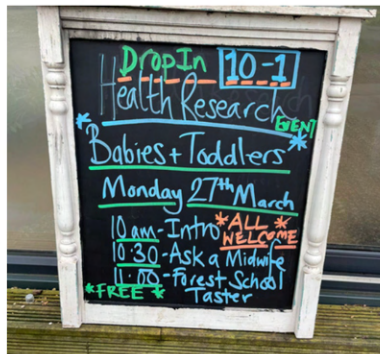 DropIn 10-1
Health Research
EVENT
*Babies + Toddlers*
Monday 27th March
10am - Intro *ALL WELCOME*
10:30 - Ask a Midwife
11:00 - Forest School Taster
*FREE*